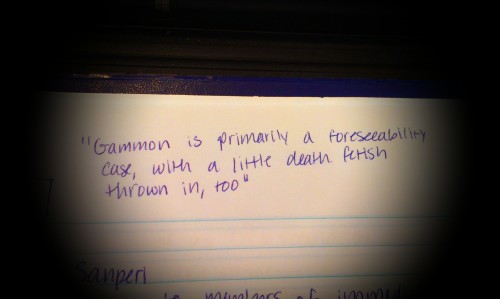 "Gammon is primarily a foreseeability
case, with a little death fetish
thrown in, too"
Sanperl
members of immed